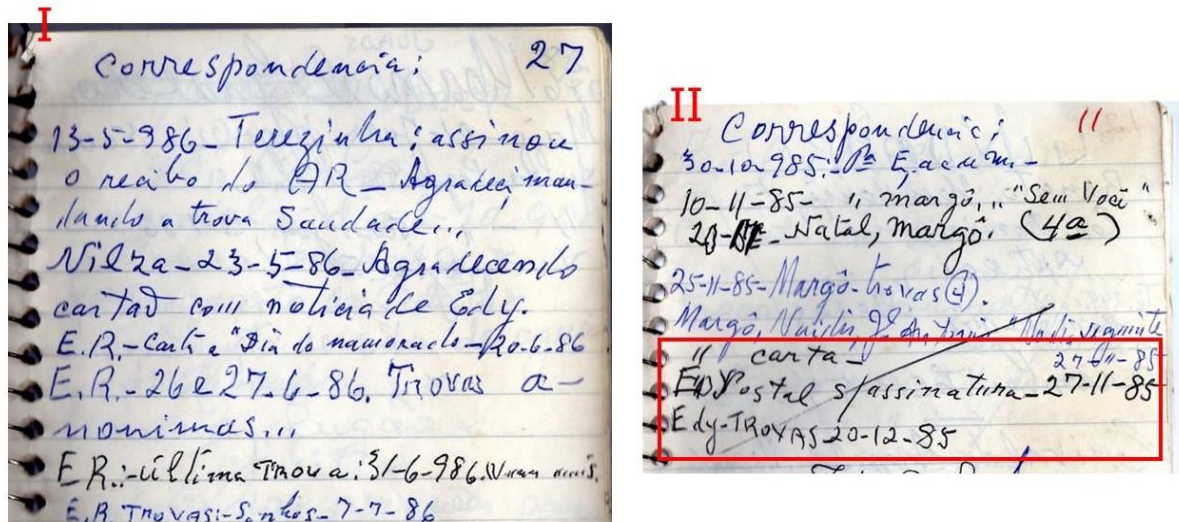 I
Correspondencia: 27
13-5-986- Terezinha: assinou
o recibo do AR - Agradeci man-
dando a trova Saudade...
Nilza - 23-5-86- Agradecendo
cartaõ com noticia de Edy.
E.R.- Carta "Dia do namorado - 20-6-86
E.R. - 26 e 27.6-86. Trovas a-
nonimas...
E R.:- última Trova: 31-6-986. Nunca mais.
E.R. Trovas:- Sonhos - 7-7-86
II
Correspondencia: 11
30-10-985:
10-11-85- " margô,.. "Sem Você"
Natal, margô. (4ª)
25-11-85- Margô- trovas (4).
Margô, "No dia seguinte
" carta - 27-11-85
Postal s/assinatura - 27-11-85
Edy-TROVAS 20-12-85